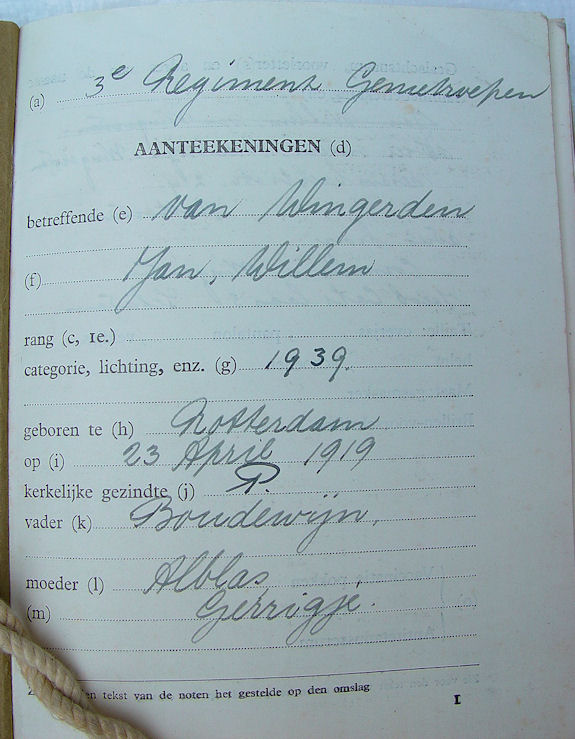 (a) 3e Regiment Genietroepen
AANTEEKENINGEN (d)
betreffende (e) van Wingerden
(f) Jan, Willem
rang (c, 1e.)
categorie, lichting, enz. (g) 1939.
geboren te (h) Rotterdam
op (i) 23 April 1919
kerkelijke gezindte (j) P.
vader (k) Boudewijn,
moeder (l) Alblas
(m) Gerrigje.
en tekst van de noten het gestelde op den omslag
1